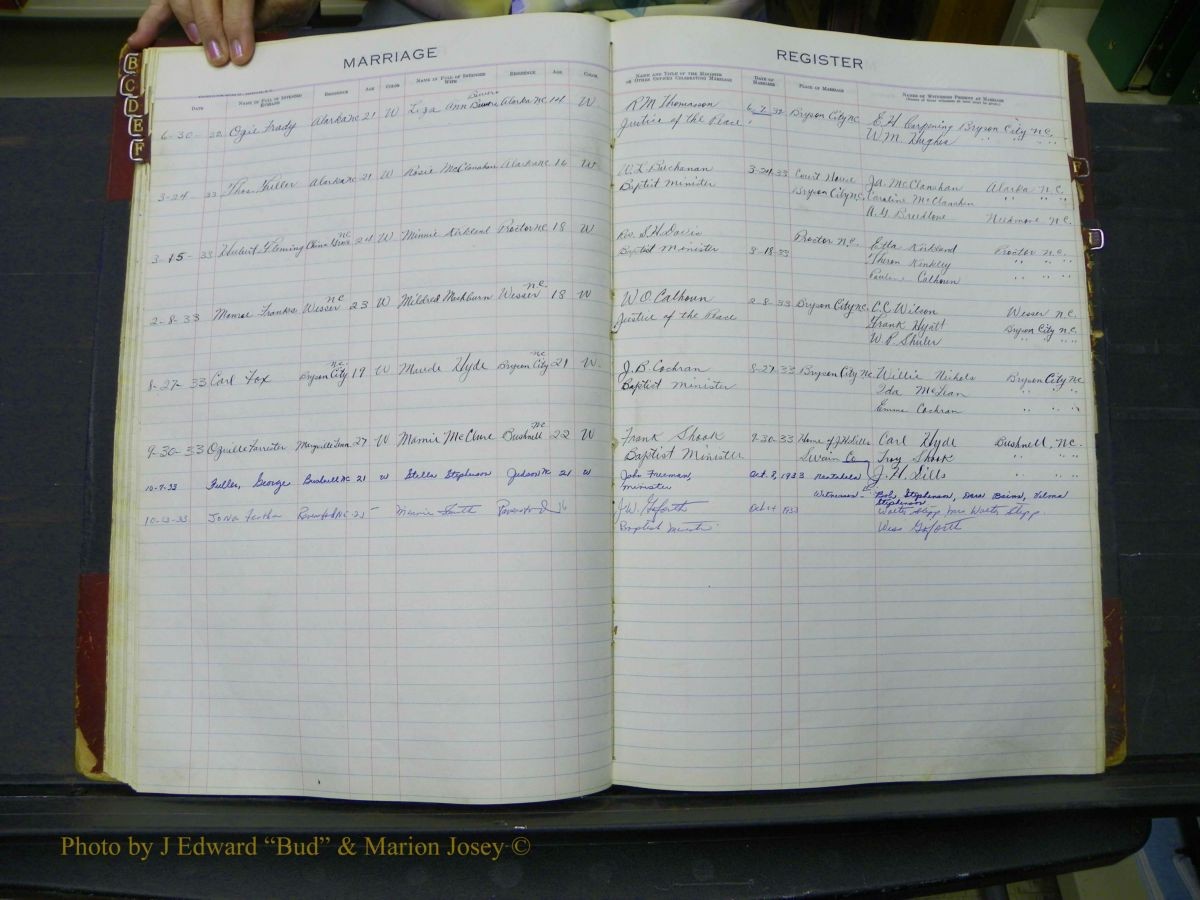 MARRIAGE
REGISTER
DATE NAME IN FULL OF INTENDED HUSBAND RESIDENCE AGE COLOR NAME IN FULL OF INTENDED WIFE RESIDENCE AGE COLOR
NAME AND TITLE OF THE MINISTER OR OTHER OFFICER CELEBRATING MARRIAGE DATE OF MARRIAGE PLACE OF MARRIAGE NAMES OF WITNESSES PRESENT AT MARRIAGE
B
C
D
E
F
6-30- Ogie Frady Alarka NC 21 W Liza Ann Alarka NC 14 W R M Thomasson Bryson City NC E. H. Carpening Bryson City N.C.
Justice of the Peace W. M. Hughes " " "
3-24 33 Thos. Fuller Alarka NC 21 W Rosie McClanahan Alarka NC 16 W W. L. Buchanan 3-24-33 Court House Ja. McClanahan Alarka N.C.
Baptist Minister Bryson City NC. Caroline McClanahan " " "
Breedlove Needmore N.C.
3-15-33 Hubert Fleming China Grove N.C. 24 W Minnie Kirkland Proctor NC 18 W Rev. S. H. Davis Proctor N.C. Etta Kirkland Proctor N.C.
Baptist Minister 3-18-33 Theron Kinkley " " "
Calhoun " " "
2-8-33 Monroe Franks Wesser N.C. 23 W Mildred Mashburn Wesser N.C. 18 W W. O. Calhoun 2-8-33 Bryson City NC. C. C. Wilson Wesser N.C.
Justice of the Peace Frank Hyatt Bryson City N.C.
W. P. Shuler " " "
8-27-33 Carl Fox Bryson City N.C. 19 W Maude Hyde Bryson City N.C. 21 W J. B. Cochran 8-27-33 Bryson City NC Willie Nichols Bryson City NC
Baptist Minister Ida McLean " " "
Emma Cochran " " "
9-30-33 Farester Maryville Tenn 27 W Mamie McClure Bushnell NC 22 W Frank Shook 9-30-33 Home of J H Dills Carl Hyde Bushnell, N.C.
Baptist Minister Swain Co Troy Shook " "
10-7-33 Fuller, George Bushnell NC 21 W Stella Stephenson Judson NC 21 W John Freeman, Oct. 8, 1933 Nantahala J. H. Dills " "
minister Witnesses - Bob Stephenson, Dave Bains, Velma
Stephenson
10-13-33 23 Smith 16 J. W. Goforth Oct 14 1933 Walter Stepp Mrs Walter Stepp
Baptist Wess Goforth
Photo by J Edward “Bud” & Marion Josey ©